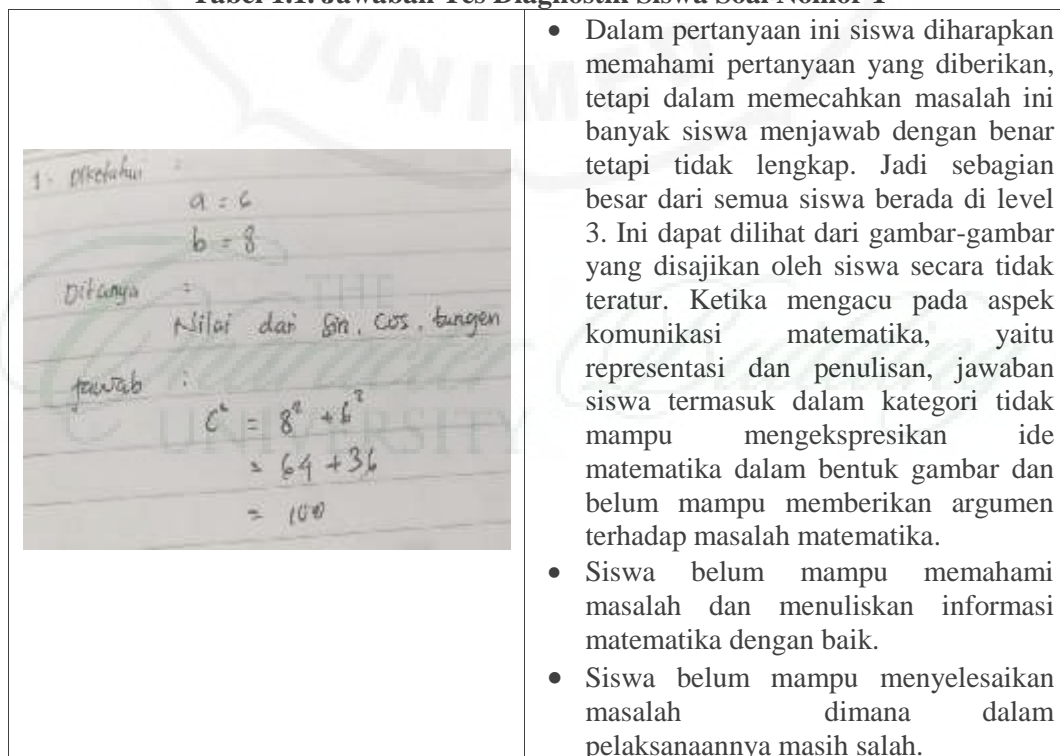 Tabel 1.1. Jawaban Tes Diagnostik Siswa Soal Nomor 1
1. Diketahui :
a = 6
b = 8
Ditanya :
Nilai dari Sin, Cos, tangen
Jawab :
c² = 8² + 6²
= 64 + 36
= 100
• Dalam pertanyaan ini siswa diharapkan
memahami pertanyaan yang diberikan,
tetapi dalam memecahkan masalah ini
banyak siswa menjawab dengan benar
tetapi tidak lengkap. Jadi sebagian
besar dari semua siswa berada di level
3. Ini dapat dilihat dari gambar-gambar
yang disajikan oleh siswa secara tidak
teratur. Ketika mengacu pada aspek
komunikasi matematika, yaitu
representasi dan penulisan, jawaban
siswa termasuk dalam kategori tidak
mampu mengekspresikan ide
matematika dalam bentuk gambar dan
belum mampu memberikan argumen
terhadap masalah matematika.
• Siswa belum mampu memahami
masalah dan menuliskan informasi
matematika dengan baik.
• Siswa belum mampu menyelesaikan
masalah dimana dalam
pelaksanaannya masih salah.
UNIMED
THE
Character Building
UNIVERSITY